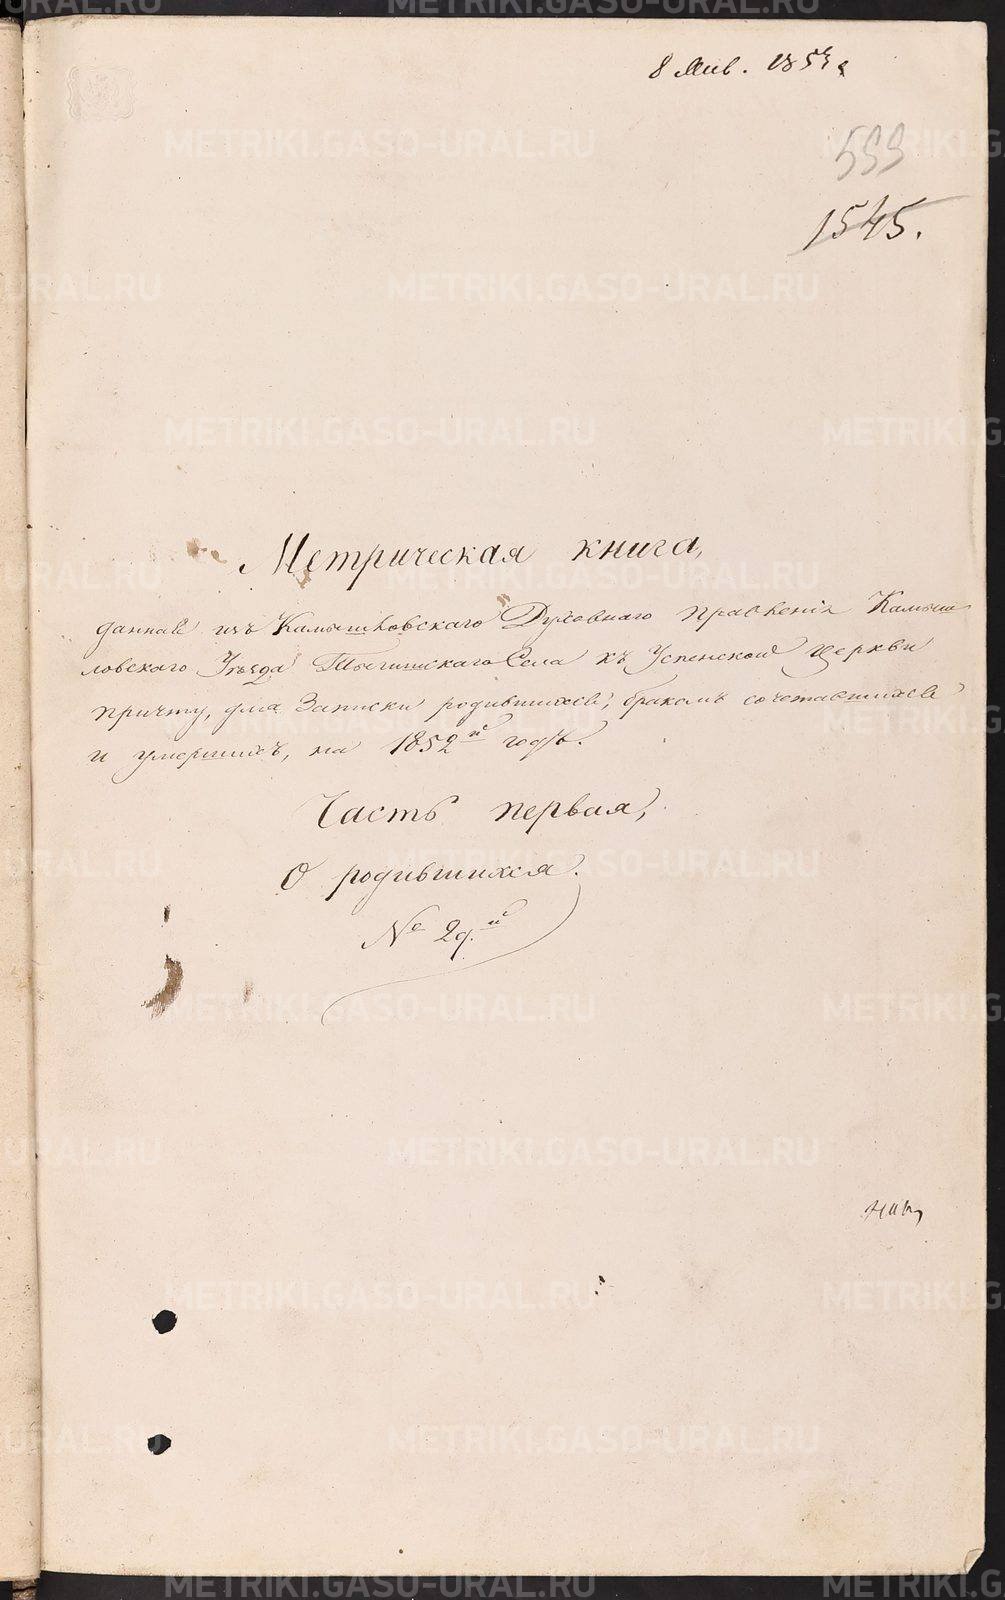 8 Янв. 1853 г
599
1545.
Метрическая книга,
данная изъ Камышловскаго Духовнаго правленія Камыш
ловскаго Уѣзда Тыгишскаго Села къ Успенской церкви
причту, для Записки родившихся, бракомъ сочетавшихся
и умершихъ, на 1852й годъ.
Часть первая,
О родившихся.
№ 29.й
METRIKI.GASO-URAL.RU